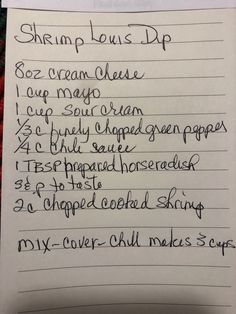 Shrimp Louis Dip
8oz cream cheese
1 cup mayo
1 cup sour cream
1/3 c finely chopped green pepper
1/4 c chili sauce
1 TBSP prepared horseradish
S & p to taste
2 c chopped cooked shrimp
mix-cover-chill makes 3 cups